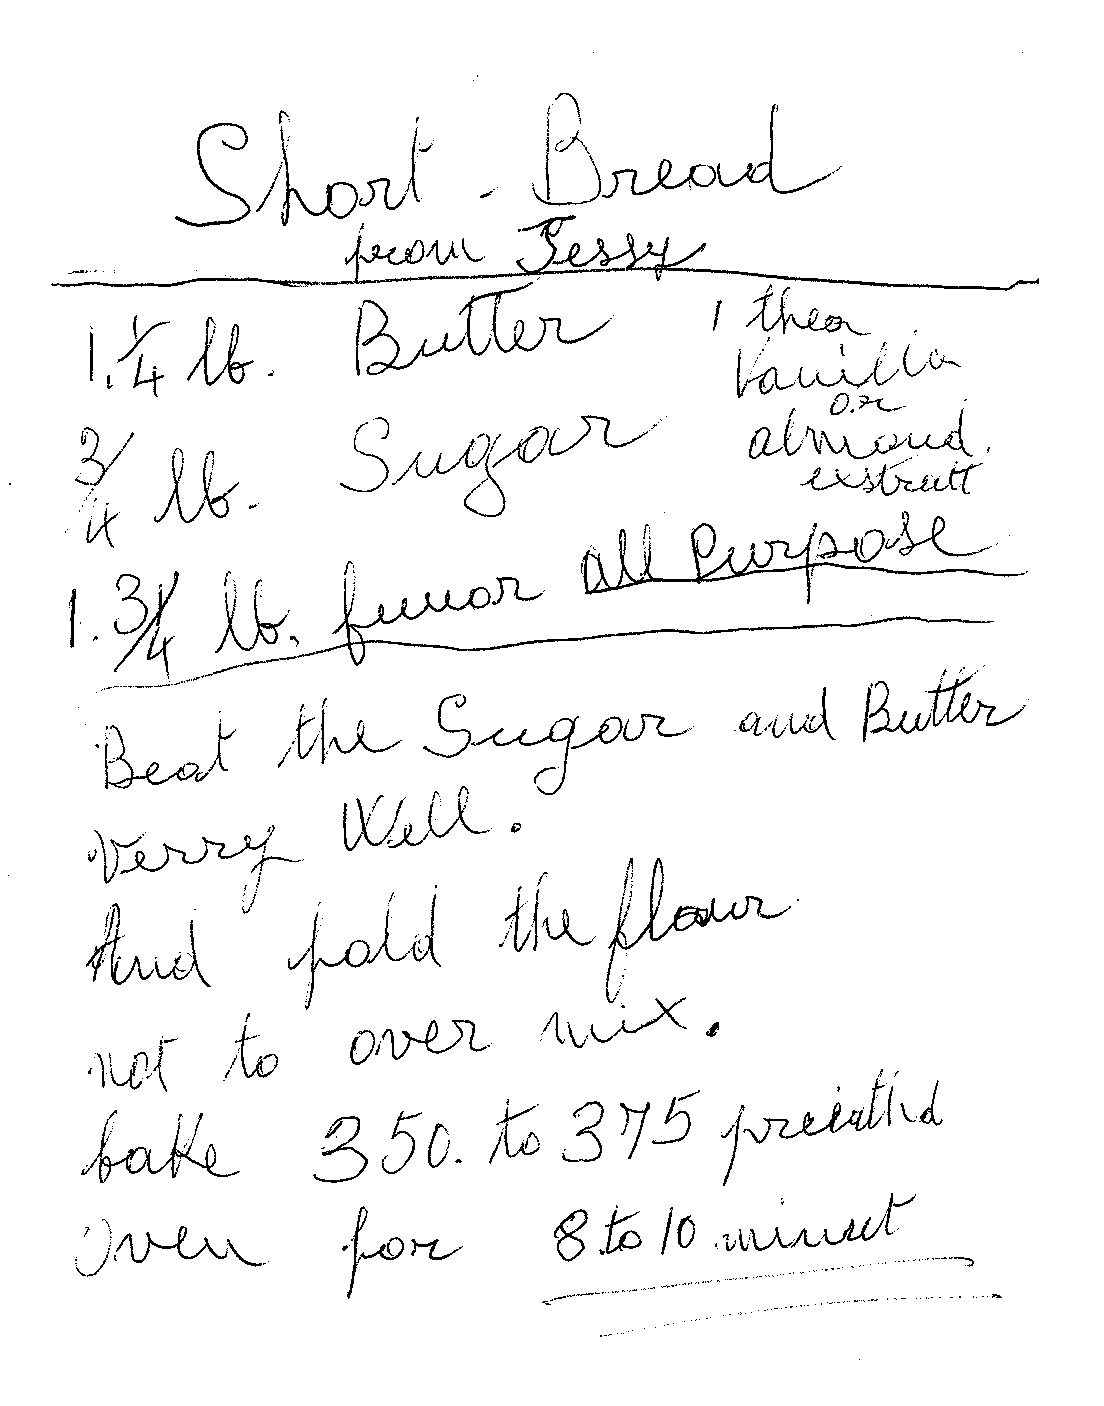 Short - Bread
from Jessy
1. 1/4 lb. Butter
3/4 lb. Sugar
1 thea
Vanilla
or
almond.
exstratt
1. 3/4 lb. All Purpose
Beat the Sugar and Butter
Verry Well.
And fold the flour
not to over mix.
bake 350. to 375
Oven for 8 to 10 minuet